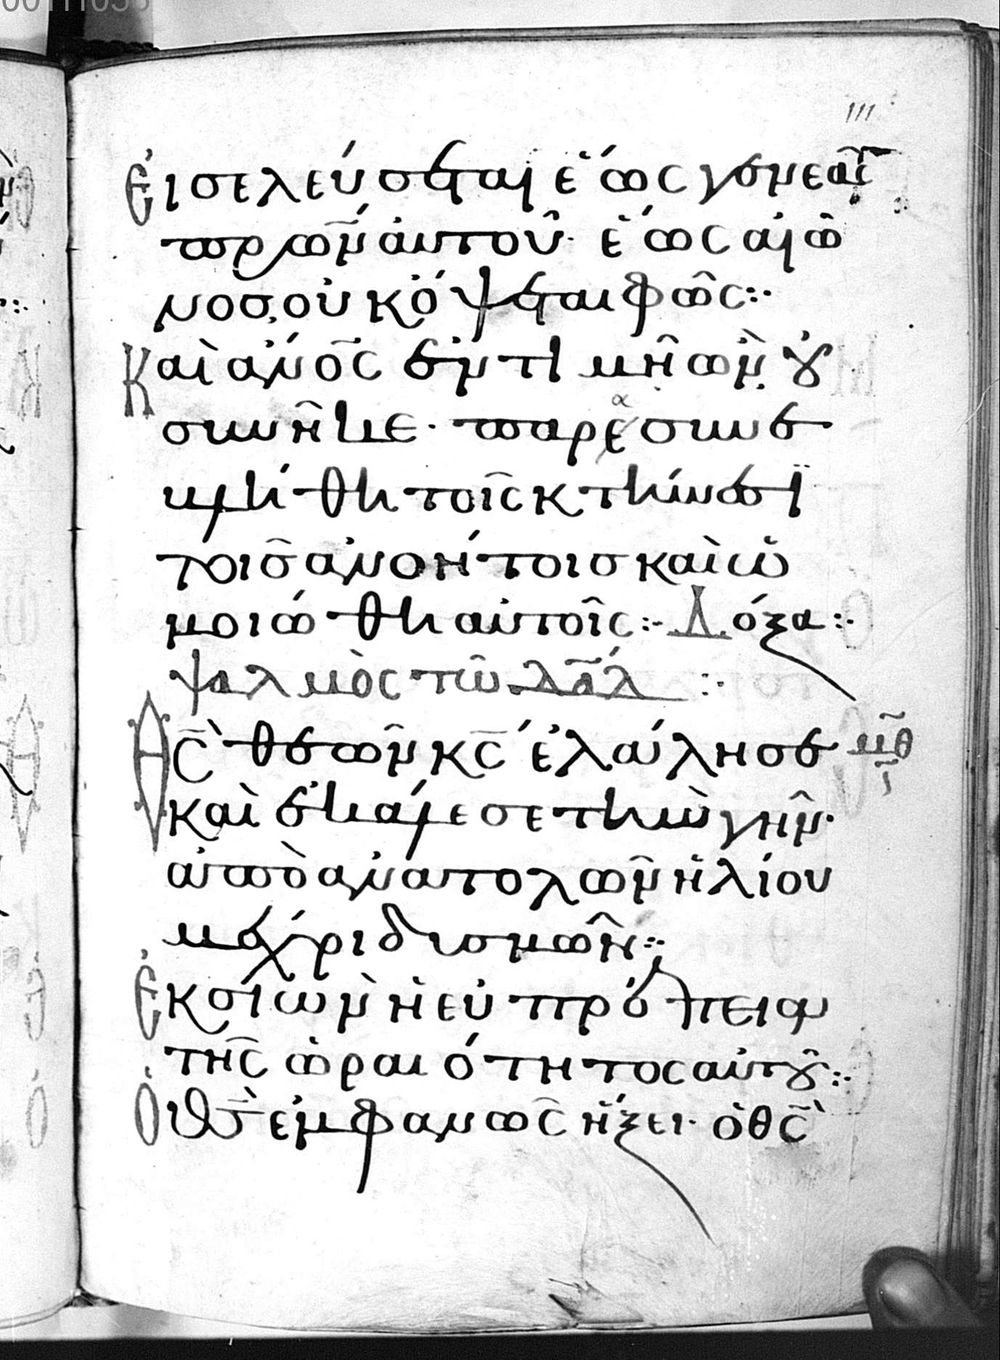 111
Εἰσελεύσεται ἕως γενεᾶς
πρων αὐτοῦ· ἕως αἰῶ
νος οὐκ ὄψεται φῶς:·
Καὶ ἀνος ἐν τιμῇ ὢν οὐ
συνῆκε· παρεσυνε
κρίθη τοῖς κτήνεσι
τοῖς ἀνοήτοις καὶ ὡ
μοιώθη αὐτοῖς:· Δόξα:·
ψαλμὸς τῶ δαδ:·
Θς θεῶν κς ἐλάλησε
μθ
καὶ ἐκάλεσε τὴν γῆν·
ἀπὸ ἀνατολῶν ἡλίου
μέχρι δυσμῶν:·
Ἐκ σιὼν ἡ εὐπρέπεια
τῆς ὡραιότητος αὐτοῦ:·
Ὁ θς ἐμφανῶς ἥξει· ὁ θς